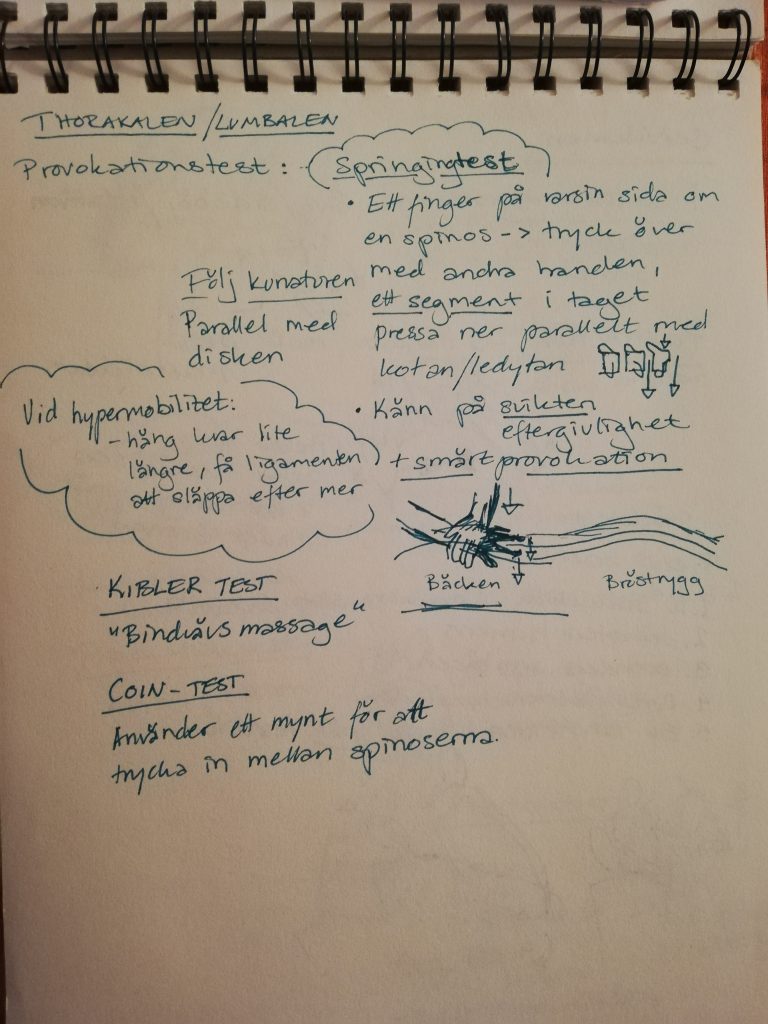 THORAKALEN/LUMBALEN
Provokationstest: Springingtest
• Ett finger på varsin sida om
en spinos -> tryck över
med andra handen,
ett segment i taget
pressa ner parallellt med
kotan/ledytan
Följ kurvaturen
Parallel med
disken
• Känn på svikten
eftergivlighet
+ smärtprovokation
Vid hypermobilitet:
- häng kvar lite
längre, få ligamenten
att släppa efter mer
Bäcken Bröstrygg
KIBLER TEST
"Bindvävsmassage"
COIN-TEST
Använder ett mynt för att
trycka in mellan spinoserna.